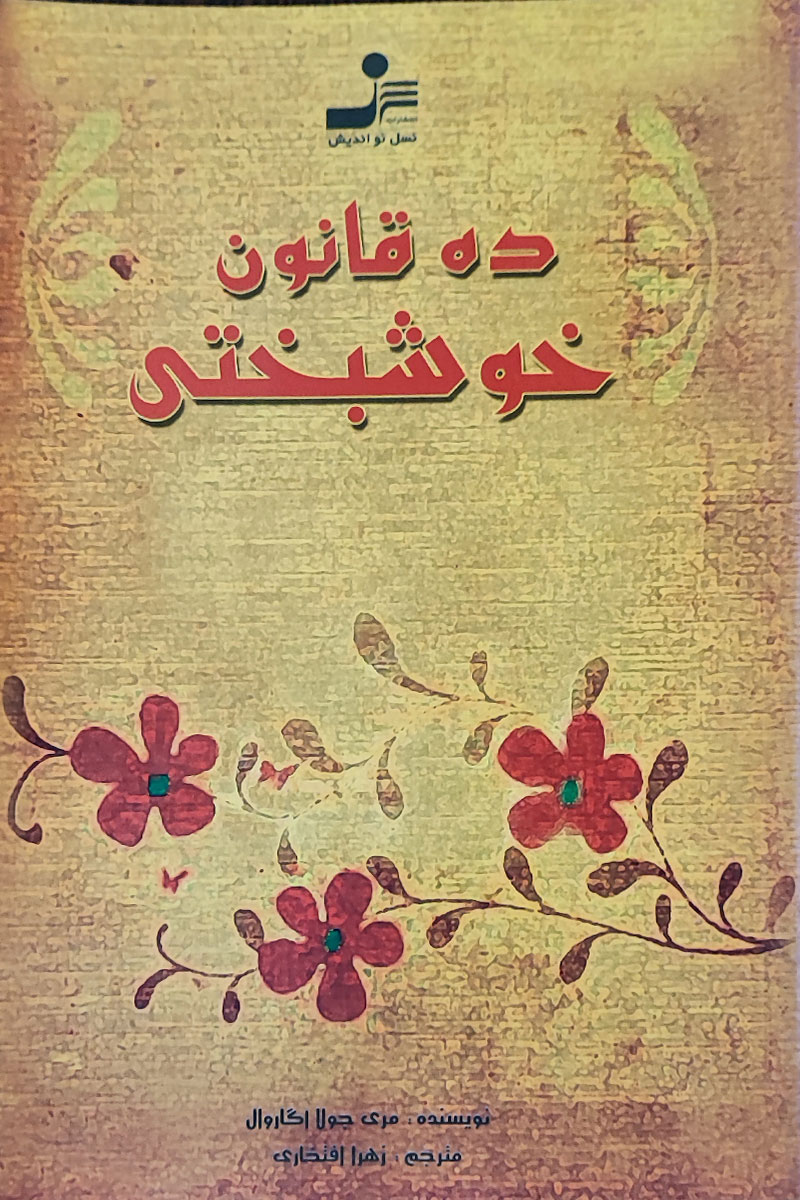 انتشارات
نسل نو اندیش
ده قانون
خوشبختی
نویسنده : مری جولا اگاروال
مترجم : زهرا افتخاری